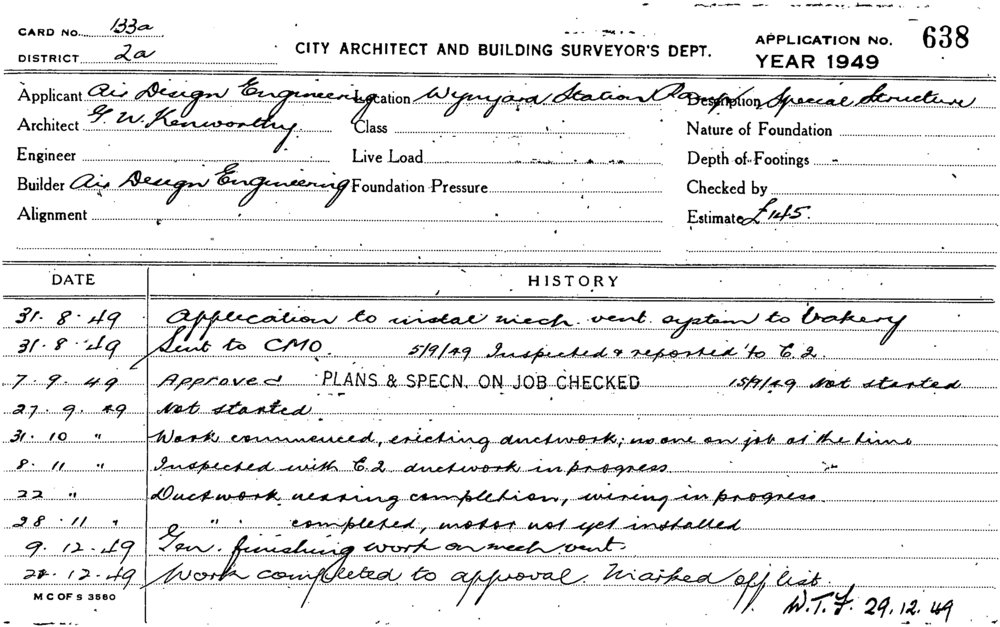 CARD No. 133a
DISTRICT 2a
CITY ARCHITECT AND BUILDING SURVEYOR'S DEPT.
APPLICATION No. 638
YEAR 1949
Applicant Air Design Engineering Location Wynyard Station Ramp Description Special Structure
Architect G. W. Kenworthy Class Nature of Foundation
Engineer Live Load Depth of Footings
Builder Air Design Engineering Foundation Pressure Checked by
Alignment Estimate £145.
DATE HISTORY
31. 8. 49 Application to instal mech. vent. system to bakery
31. 8. 49 Sent to CMO. 5/9/49 Inspected & reported to E.2.
7. 9. 49 Approved PLANS & SPECN. ON JOB CHECKED 15/9/49 Not started
27. 9. 49 Not started.
31. 10 " Work commenced, erecting ductwork; no one on job at the time
8. 11 " Inspected with E.2. ductwork in progress
22 " Ductwork nearing completion, wiring in progress.
28. 11 " " completed, motor not yet installed
9. 12. 49 Gen. finishing work on mech vent.
12. 49 Work completed to approval. Marked off list.
M C OF S 3580
W.T.F. 29.12.49